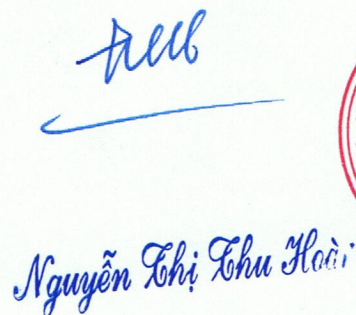 Nguyễn Thị Thu Hoài